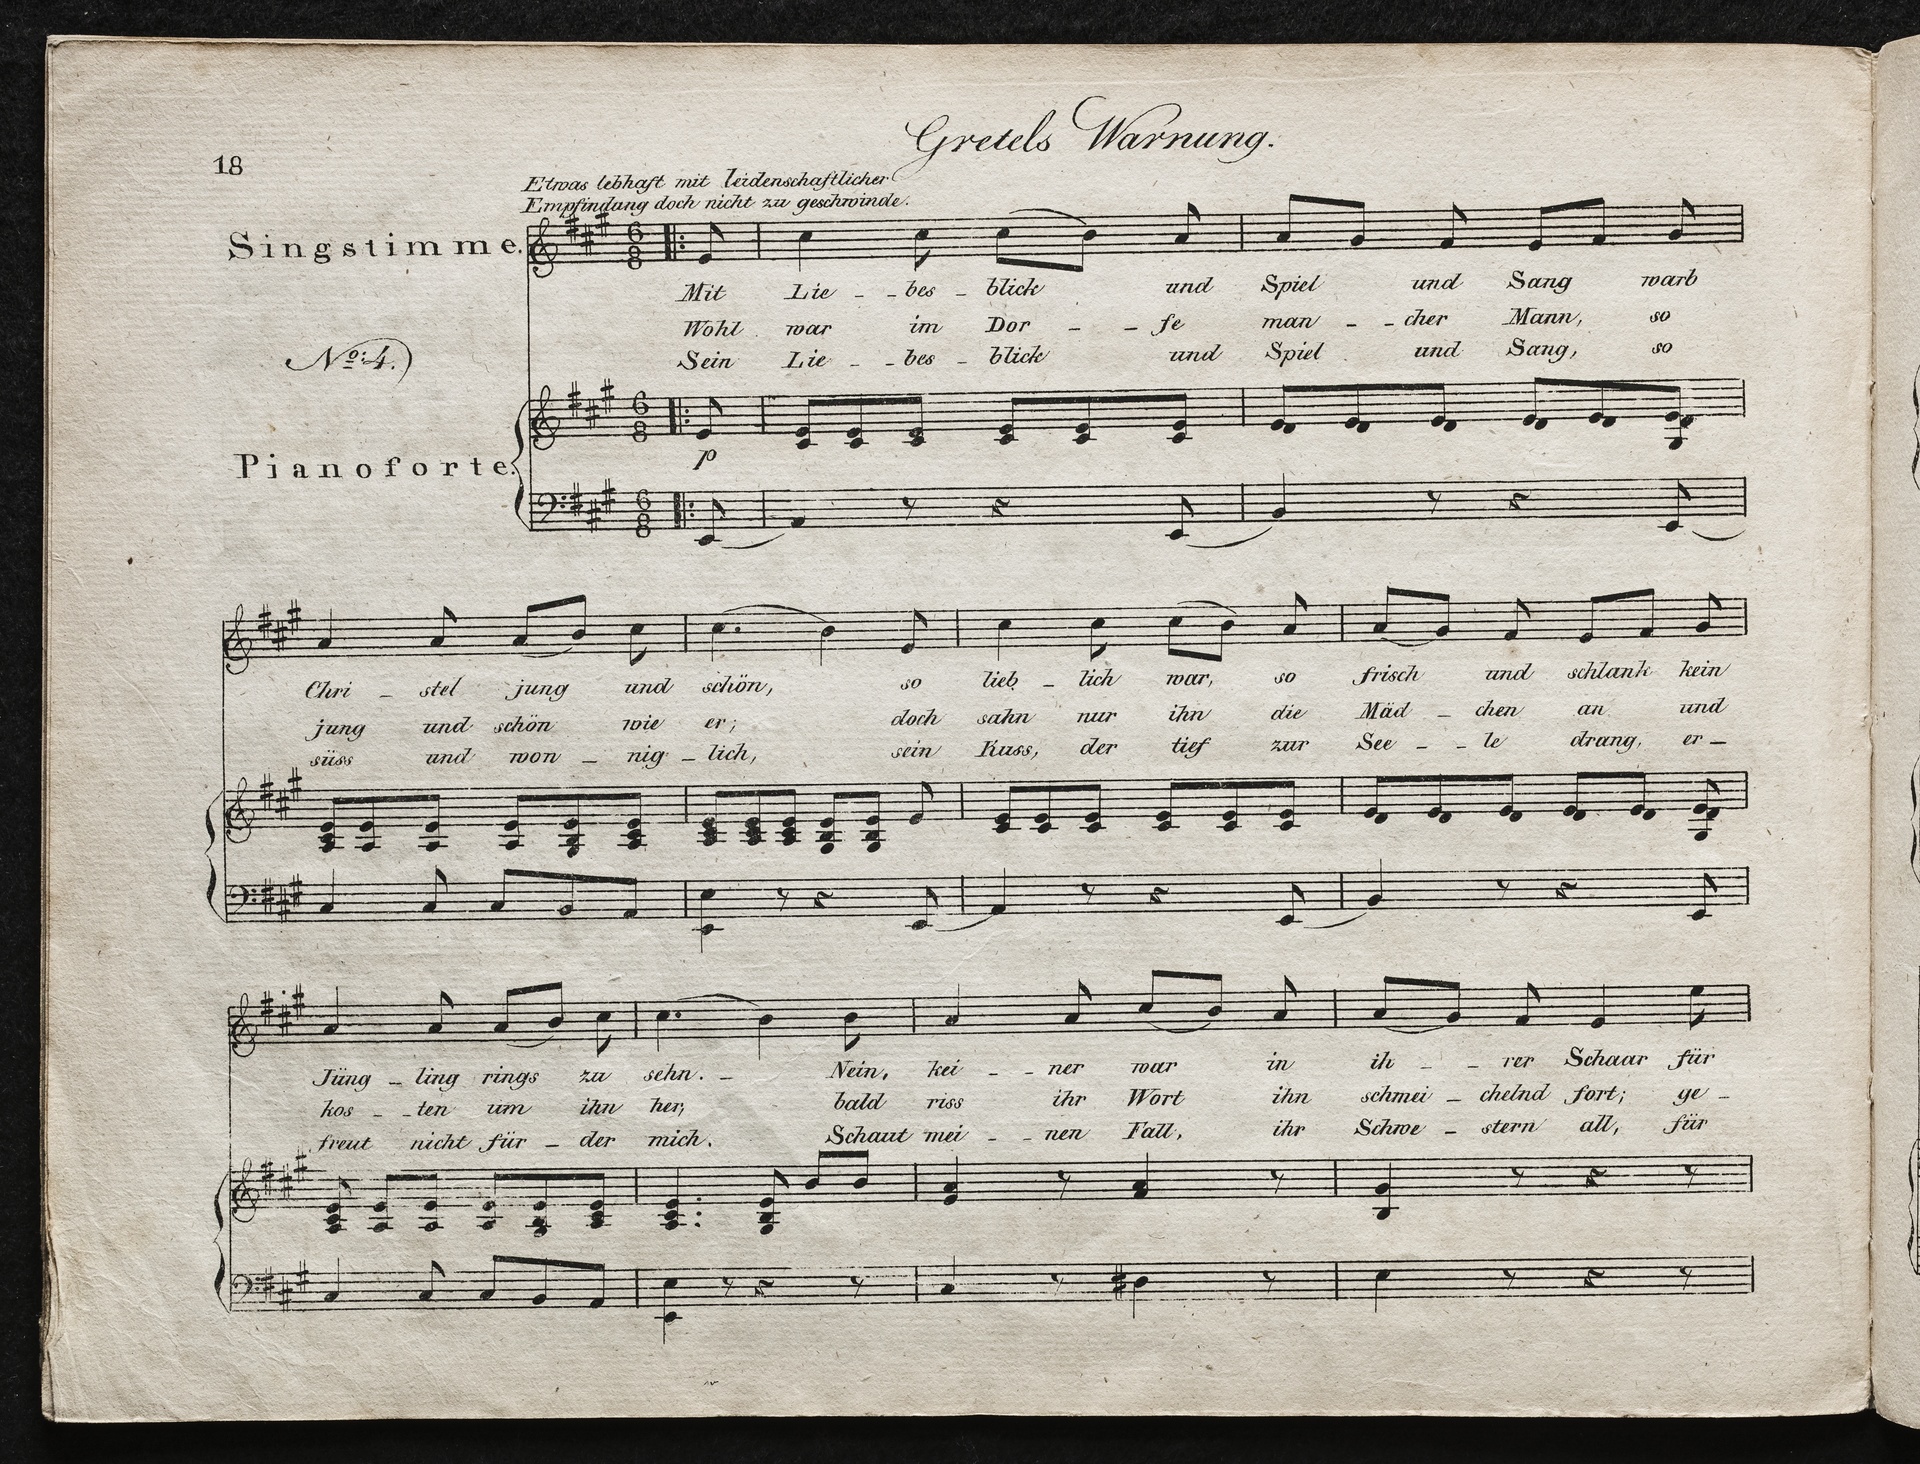 18
Gretels Warnung.
Etwas lebhaft mit leidenschaftlicher
Empfindang doch nicht zu geschwinde.
Singstimme.
Mit Lie - - bes - blick und Spiel und Sang warb
Wohl war im Dor - - fe man - - cher Mann, so
Sein Lie - - bes - blick und Spiel und Sang, so
No: 4.)
Pianoforte.
p
Chri - stel jung und schön, so lieb - lich war, so frisch und schlank kein
jung und schön wie er; doch sahn nur ihn die Mäd - chen an und
süss und won - nig - lich, sein Kuss, der tief zur See - - le drang, er -
Jüng - ling rings zu sehn. - Nein, kei - - ner war in ih - - rer Schaar für
kos - - ten um ihn her; bald riss ihr Wort ihn schmei - chelnd fort; ge -
freut nicht für - der mich. Schaut mei - - nen Fall, ihr Schwe - stern all, für